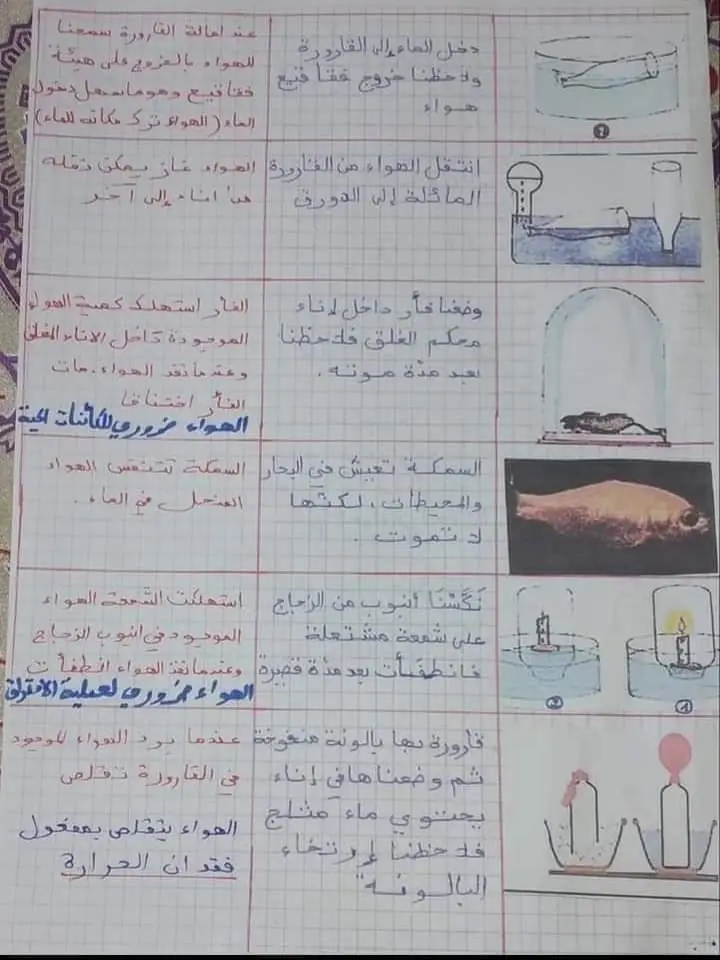 دخل الماء إلى القارورة
ولاحظنا خروج فقاقيع
هواء
عند إمالة القارورة سمعنا
للهواء بالخروج على هيئة
فقاقيع وهو ما سهل دخول
الماء (الهواء ترك مكانه للماء)
2
انتقل الهواء من القارورة
المائلة إلى الدورق
الهواء غاز يمكن نقله
من إناء إلى آخر
وضعنا فأر داخل إناء
محكم الغلق فلاحظنا
بعد مدة موته.
الفأر استهلك كمية الهواء
الموجودة داخل الاناء المغلق
وعندما نفذ الهواء، مات
الفأر اختناقا
الهواء ضروري للكائنات الحية
السمكة تعيش في البحار
والمحيطات، لكنها
لا تموت.
السمكة تتنفس الهواء
المنحل في الماء.
نَكَّسْنَا أنبوب من الزجاج
على شمعة مشتعلة
فانطفأت بعد مدة قصيرة
استهلكت الشمعة الهواء
الموجود في انبوب الزجاج
وعندما نفذ الهواء انطفأت
الهواء ضروري لعملية الاحتراق
1
2
قارورة بها بالونة منفوخة
ثم وضعناها في إناء
يحتوي ماء مثلج
فلاحظنا إرتخاء
البالونة
عندما برد الهواء الموجود
في القارورة تقلص
الهواء يتقلص بمفعول
فقدان الحرارة